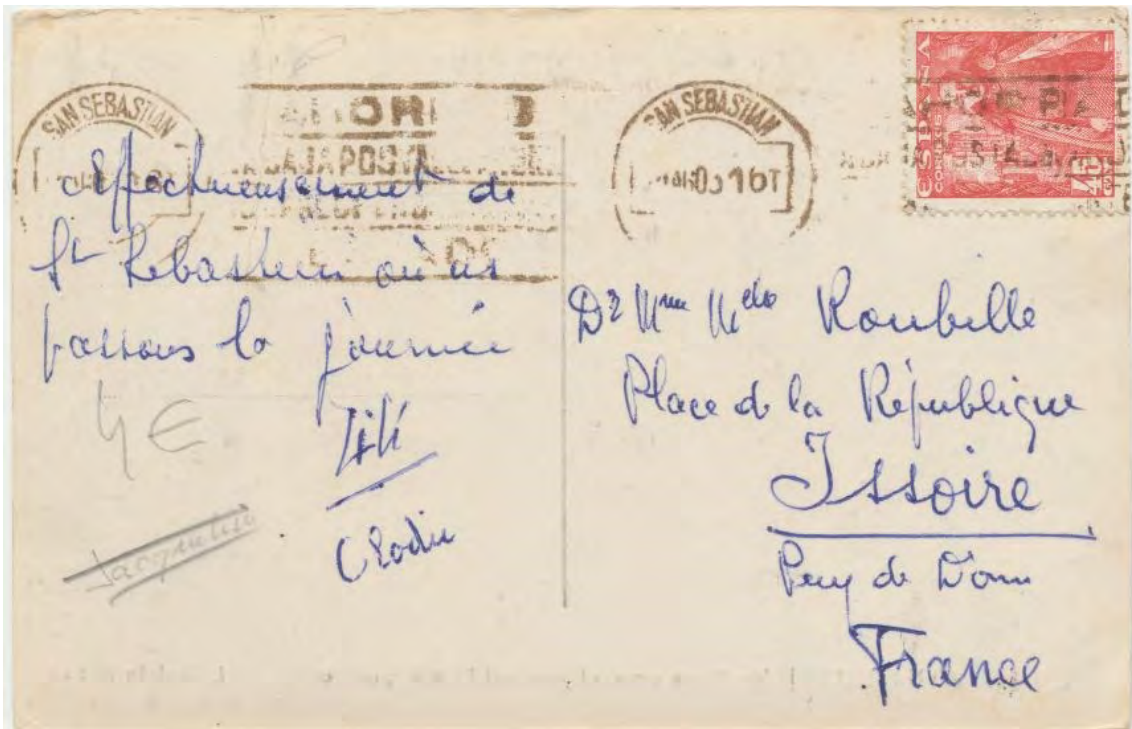 SAN SEBASTIAN
SAN SEBASTIAN
16T
ESPAÑA
CORREOS
40
CAJA POSTAL
Affectueusement de
St Sebastien où ns
passons la journée
Titi
Clodie
4€
Jacqueline
Dr Mme Melle Roubille
Place de la République
Issoire
Puy de Dome
France